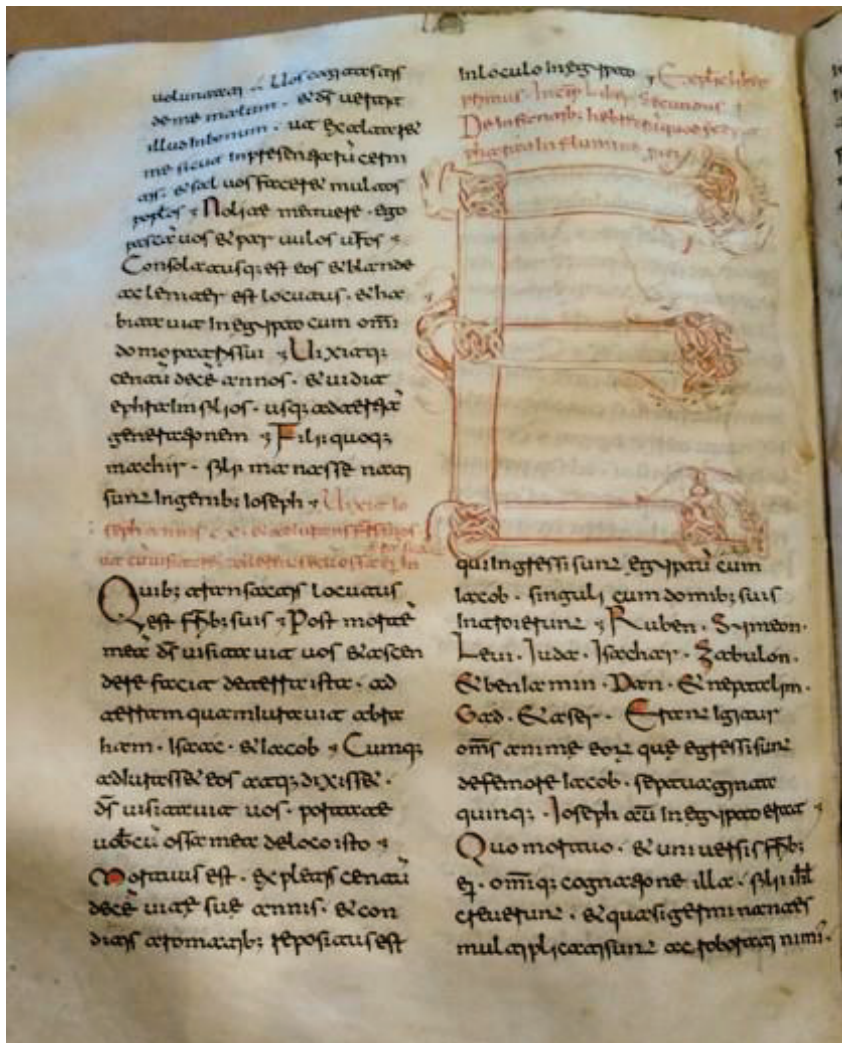 uoluntati · Uos cogitastis
de me malum · & d̄s uertit
illud inbonum · ut exaltaret
me sicut inpresentiarū cerni
tis · & saluos faceret multos
pop̄los · Nolite metuere · ego
pascā uos & paruulos ur̄os ·
Consolatusq; est eos & blande
ac leniter est locutus · & ha
bitauit in egypto cum om̄i
domo patris sui · Uixitq;
centū decē annos · & uidit
ephraim filios · usq; ad tertiā
generationem · Filii quoq;
machir · filii manasse nati
sunt in genib; Ioseph · Uixit Io
seph annis c x · & adiurans fr̄s suos
ut cū uisitaret
Quib; transactis locutus
est fr̄ib; suis · Post mortē
meā d̄s uisitauit uos & ascen
dere faciet de terra ista · ad
terram quam iurauit abra
ham · Isaac · & Iacob · Cumq;
adiurasset eos atq; dixisset ·
d̄s uisitauit uos · portate
uob̄cū ossa mea de loco isto ·
Mortuus est · expletis centū
decē uitę suę annis · & con
ditus aromatib; repositus est
in loculo in egypto · Explic̄ liber
primus · Incip̄ liber secundus
De infantib; hebreor̄ quos
pharao in flumine
E
qui ingressi sunt egyptū cum
Iacob · singuli cum domib; suis
introierunt · Ruben · Symeon ·
Leui · Iuda · Isachar · Zabulon ·
& beniamin · Dan · & neptalim ·
Gad · & aser · Erant igitur
om̄s animę eor̄ quę egressi sunt
de femore Iacob · septuaginta
quinq; · Ioseph aū in egypto erat ·
Quo mortuo · & uniuersis fr̄ib;
ei · om̄iq; cognatione illa · filii isr̄l
creuerunt · & quasi germinantes
multiplicati sunt ac roborati nimi